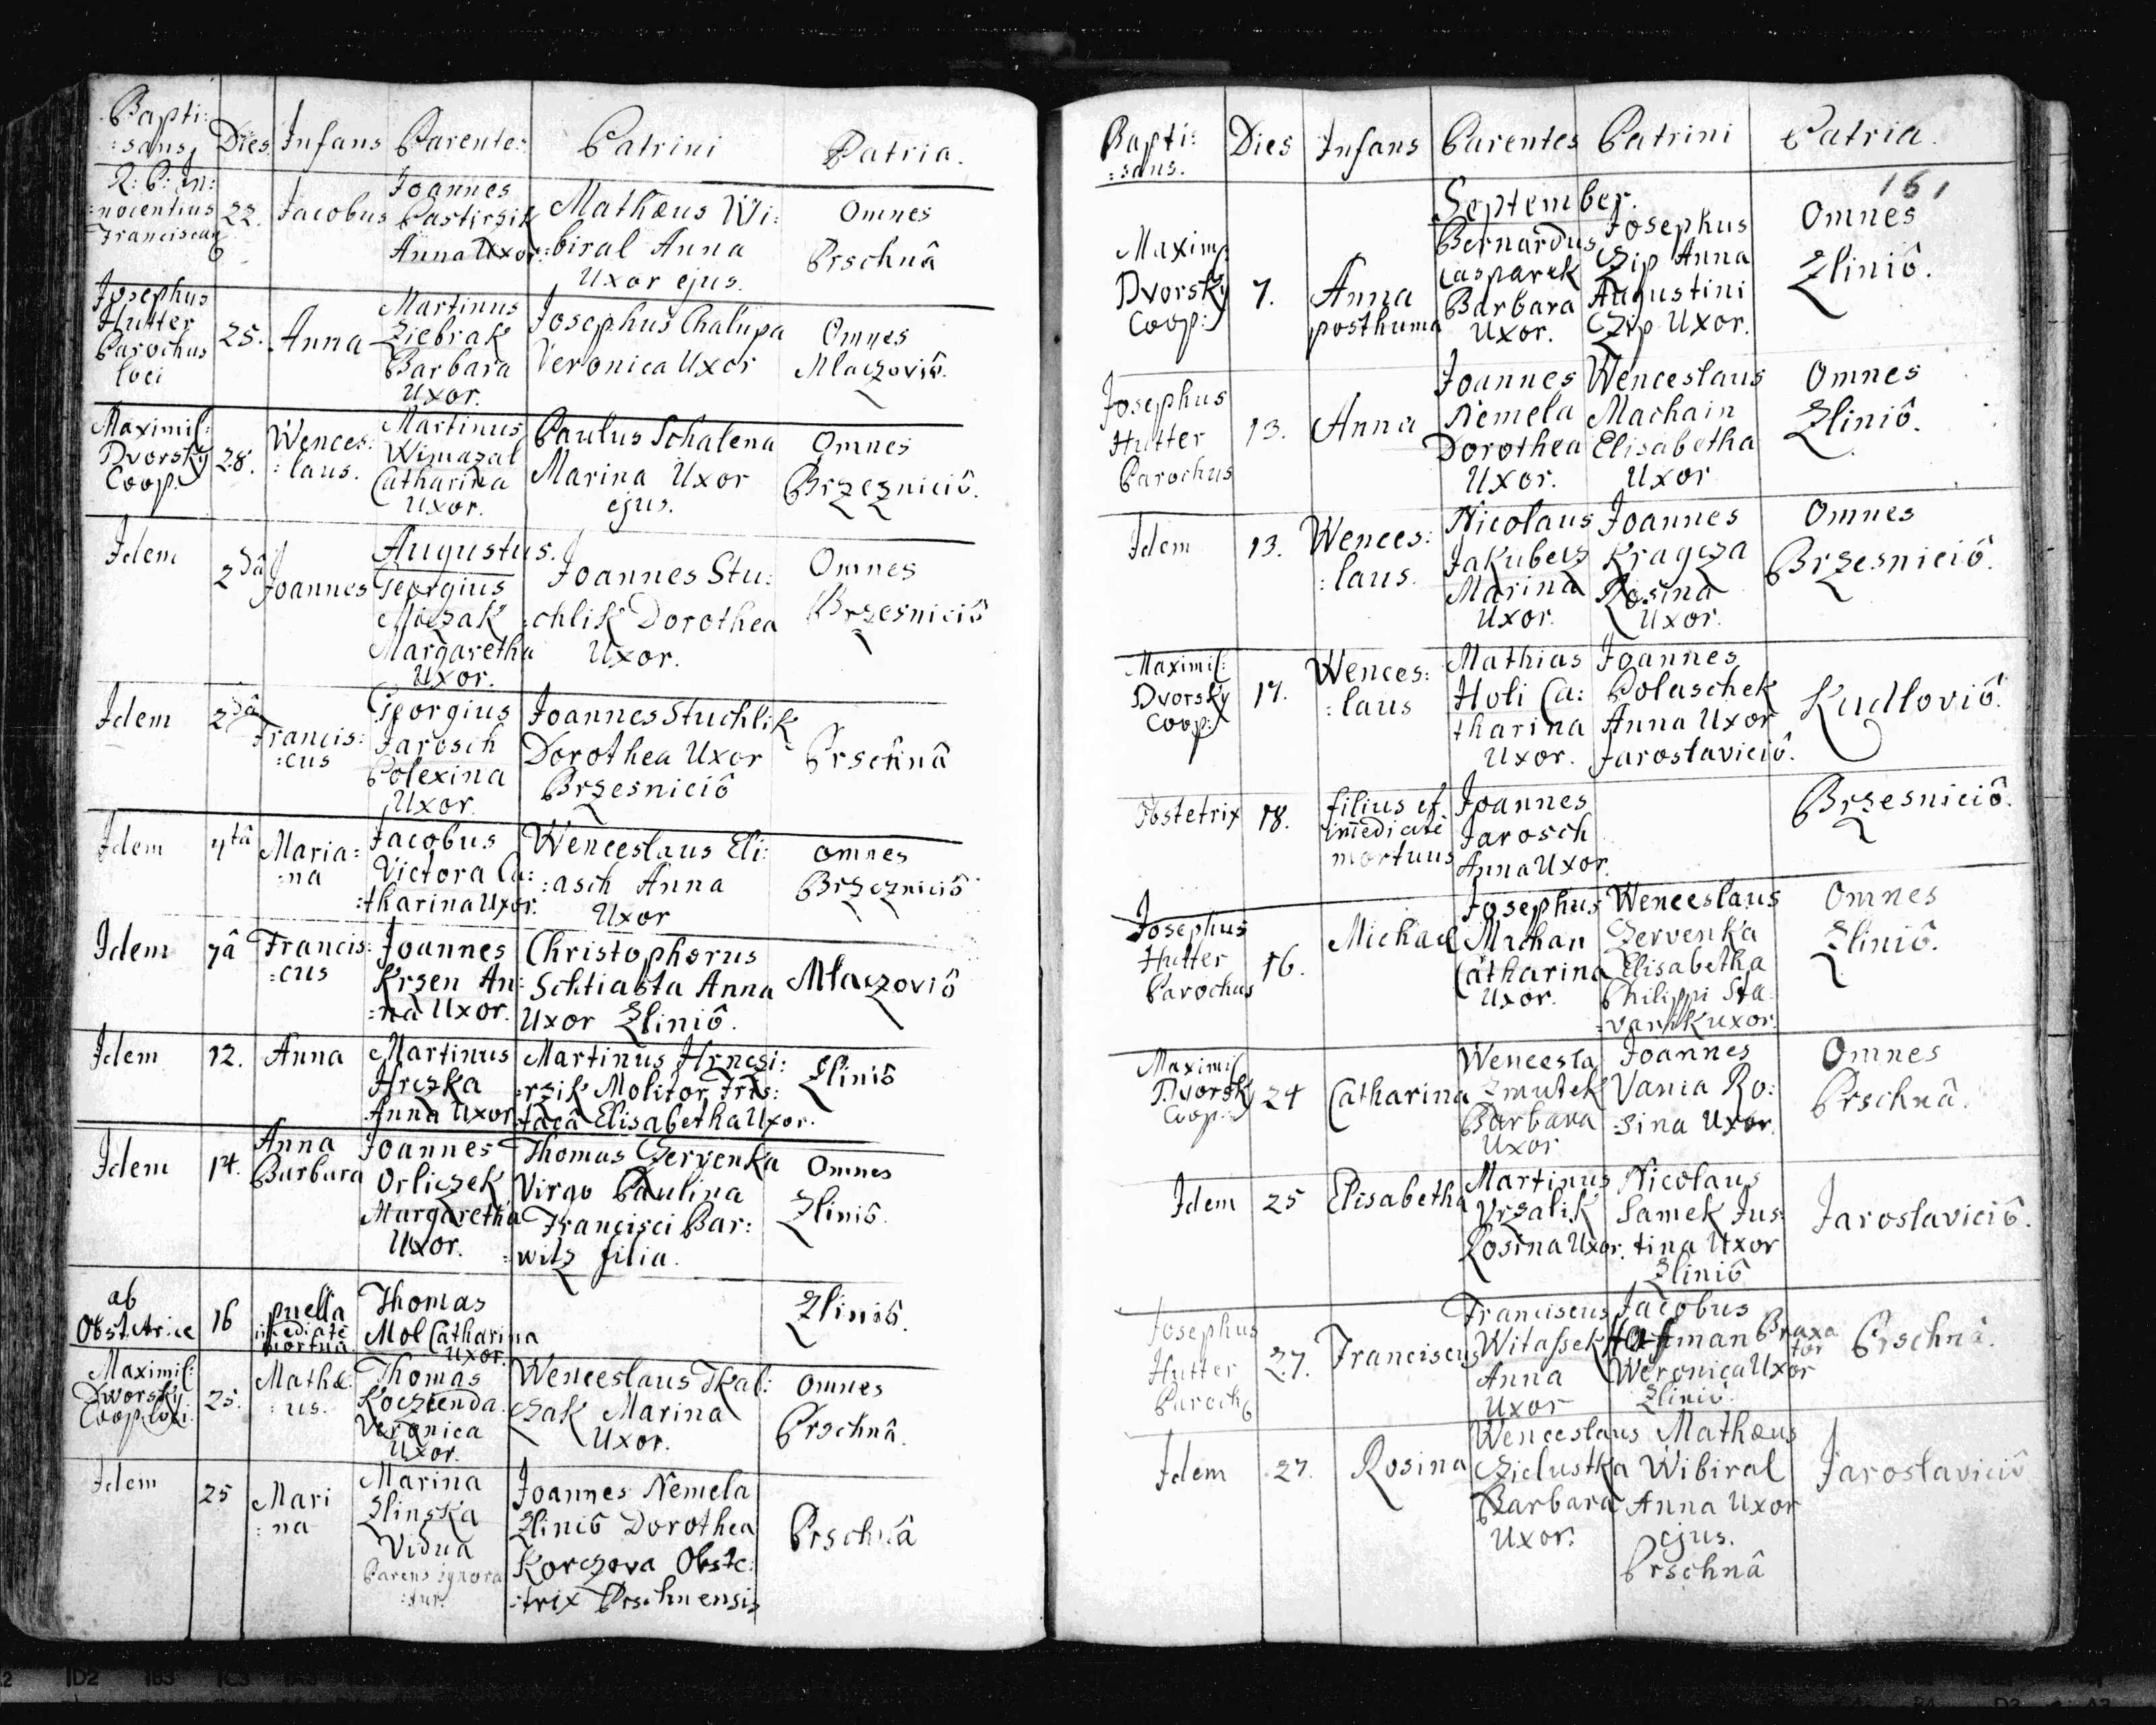 Bapti:
:sans, Dies. Infans Parentes Patrini Patria.
R: P: In:
:nocentius
Franciscan9
22. Jacobus
Joannes
Pastirzik
Anna Uxor.
Mathæus Wi:
:biral Anna
Uxor ejus.
Omnes
Prschnâ
Josephus
Hutter
Parochus
loci
25. Anna
Martinus
Ziebrak
Barbara
Uxor.
Josephus Chalupa
Veronica Uxor
Omnes
Mlaczoviô.
Maximil:
Dvorsky
Coop:
28.
Wences:
:laus.
Martinus
Wimazal
Catharina
Uxor.
Paulus Schalena
Marina Uxor
ejus.
Omnes
Brzezniciô.
Augustus.
Idem
2dâ
Joannes
Georgius
Miczak
Margaretha
Uxor.
Joannes Stu:
:chlik Dorothea
Uxor.
Omnes
Brzesniciô
Idem
2dâ
Francis:
:cus
Georgius
Jarosch
Polexina
Uxor.
Joannes Stuchlik
Dorothea Uxor
Brzesniciô
Prschnâ
Idem
4tâ
Maria:
:na
Jacobus
Victora Ca:
:tharina Uxor.
Wenceslaus Eli:
:asch Anna
Uxor
Omnes
Brzezniciô
Idem
7â
Francis:
:cus
Joannes
Krzen An:
:na Uxor.
Christophorus
Schtiasta Anna
Uxor Zliniô.
Mlaczoviô
Idem
12. Anna
Martinus
Hrczka
Anna Uxor
Martinus Hrnczi:
:rzik Molitor
Elisabetha Uxor.
Zliniô
Idem
14.
Anna
Barbara
Joannes
Orliczek
Margaretha
Uxor.
Thomas Czervenka
Virgo Paulina
Francisci Bar:
:witz filia.
Omnes
Zliniô.
ab
Obstetrice
16
puella
imediatè
mortua
Thomas
Mol Catharina
Uxor.
Zliniô.
Maximil:
Dworsky
Coop: loci.
25.
Mathæ:
:us.
Thomas
Koczienda
Veronica
Uxor.
Wenceslaus Tkal:
czak Marina
Uxor.
Omnes
Prschnâ.
Idem
25
Mari
:na
Marina
Zlinska
Vidua
Parens ignora
:tur.
Joannes Nemela
Zliniô Dorothea
Korczova Obste:
:trix Prschnensis
Prschnâ
Bapti:
:sans. Dies Infans Parentes Patrini Patria.
161
September.
Maxim:
Dvorsky
Coop:
7.
Anna
posthuma
Bernardus
Casparek
Barbara
Uxor.
Josephus
Czip Anna
Augustini
Czip Uxor.
Omnes
Zliniô.
Josephus
Hutter
Parochus
13. Anna
Joannes
Nemela
Dorothea
Uxor.
Wenceslaus
Machain
Elisabetha
Uxor
Omnes
Zliniô.
Idem
13.
Wences:
:laus.
Nicolaus
Jakubecz
Marina
Uxor.
Joannes
Kragcza
Rosina
Uxor.
Omnes
Brzesniciô.
Maximil:
Dvorsky
Coop:
17.
Wences:
:laus
Mathias
Holi Ca:
tharina
Uxor.
Joannes
Polaschek
Anna Uxor
Jaroslaviciô.
Kudloviô.
Obstetrix
18.
filius et
imediatè
mortuus
Joannes
Jarosch
Anna Uxor.
Brzesniciô.
Josephus
Hutter
Parochus
16.
Michael
Josephus
Machan
Catharina
Uxor.
Wenceslaus
Czervenka
Elisabetha
Philippi Sta:
:varzik uxor.
Omnes
Zliniô.
Maximil
Dvorsky
Coop:
24
Catharina
Wencesla
Zmutek
Barbara
Uxor
Joannes
Vania Ro:
:sina Uxor.
Omnes
Prschnâ.
Idem
25
Elisabetha
Martinus
Vrzalik
Rosina Uxor.
Nicolaus
Samek Jus:
tina Uxor
Zliniô
Jaroslaviciô.
Josephus
Hutter
Paroch9
27.
Franciscus
Franciscus
Witassek
Anna
Uxor
Jacobus
Hoffman Braxa
tor
Weronica Uxor
Zliniô.
Prschnâ.
Idem
27.
Rosina
Wenceslaus
Czielustka
Barbara
Uxor.
Mathæus
Wibiral
Anna Uxor
ejus.
Prschnâ
Jaroslaviciô